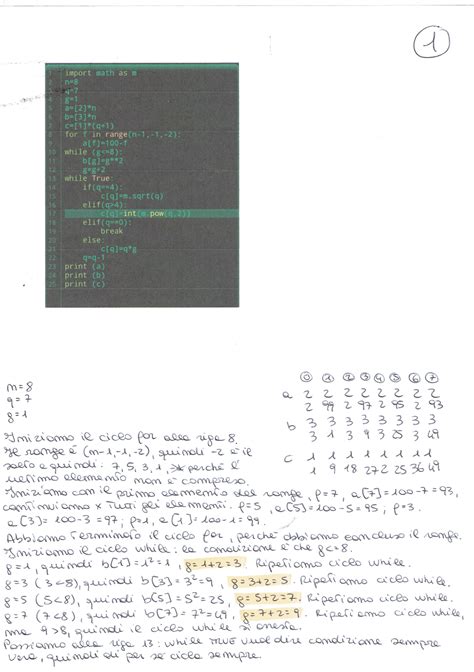 1
1 import math as m
2 n=8
3 q=7
4 g=1
5 a=[2]*n
6 b=[3]*n
7 c=[1]*(q+1)
8 for f in range(n-1,-1,-2):
9 a[f]=100-f
10 while (g<=8):
11 b[g]=g**2
12 g=g+2
13 while True:
14 if(q==4):
15 c[q]=m.sqrt(q)
16 elif(q>4):
17 c[q]=int(m.pow(q,2))
18 elif(q==0):
19 break
20 else:
21 c[q]=q*g
22 q=q-1
23 print (a)
24 print (b)
25 print (c)
0 1 2 3 4 5 6 7
a 2 2 2 2 2 2 2 2
2 99 2 97 2 95 2 93
b 3 3 3 3 3 3 3 3
3 1 3 9 3 25 3 49
c 1 1 1 1 1 1 1 1
1 9 18 27 2 25 36 49
n=8
q=7
g=1
Iniziamo il ciclo for alla riga 8.
Il range è (n-1,-1,-2), quindi -2 è il
salto e quindi: 7, 5, 3, 1, perché l'
ultimo elemento non è compreso.
Iniziamo con il primo elemento del range, f=7, a[7]=100-7=93,
continuiamo x tutti gli elementi. f=5, a[5]=100-5=95; f=3.
a[3]=100-3=97; f=1, a[1]=100-1=99.
Abbiamo terminato il ciclo for, perché abbiamo concluso il range.
Iniziamo il ciclo while: la condizione è che g<=8.
g=1, quindi b[1]=1²=1, g=1+2=3. Ripetiamo ciclo while.
g=3 (3<8), quindi b[3]=3²=9, g=3+2=5. Ripetiamo ciclo while.
g=5 (5<8), quindi b[5]=5²=25, g=5+2=7. Ripetiamo ciclo while.
g=7 (7<8), quindi b[7]=7²=49, g=7+2=9. Ripetiamo ciclo while,
ma 9>8, quindi il ciclo while si arresta.
Passiamo alla riga 13: while true vuol dire condizione sempre
vera, quindi di per sé cicla sempre.